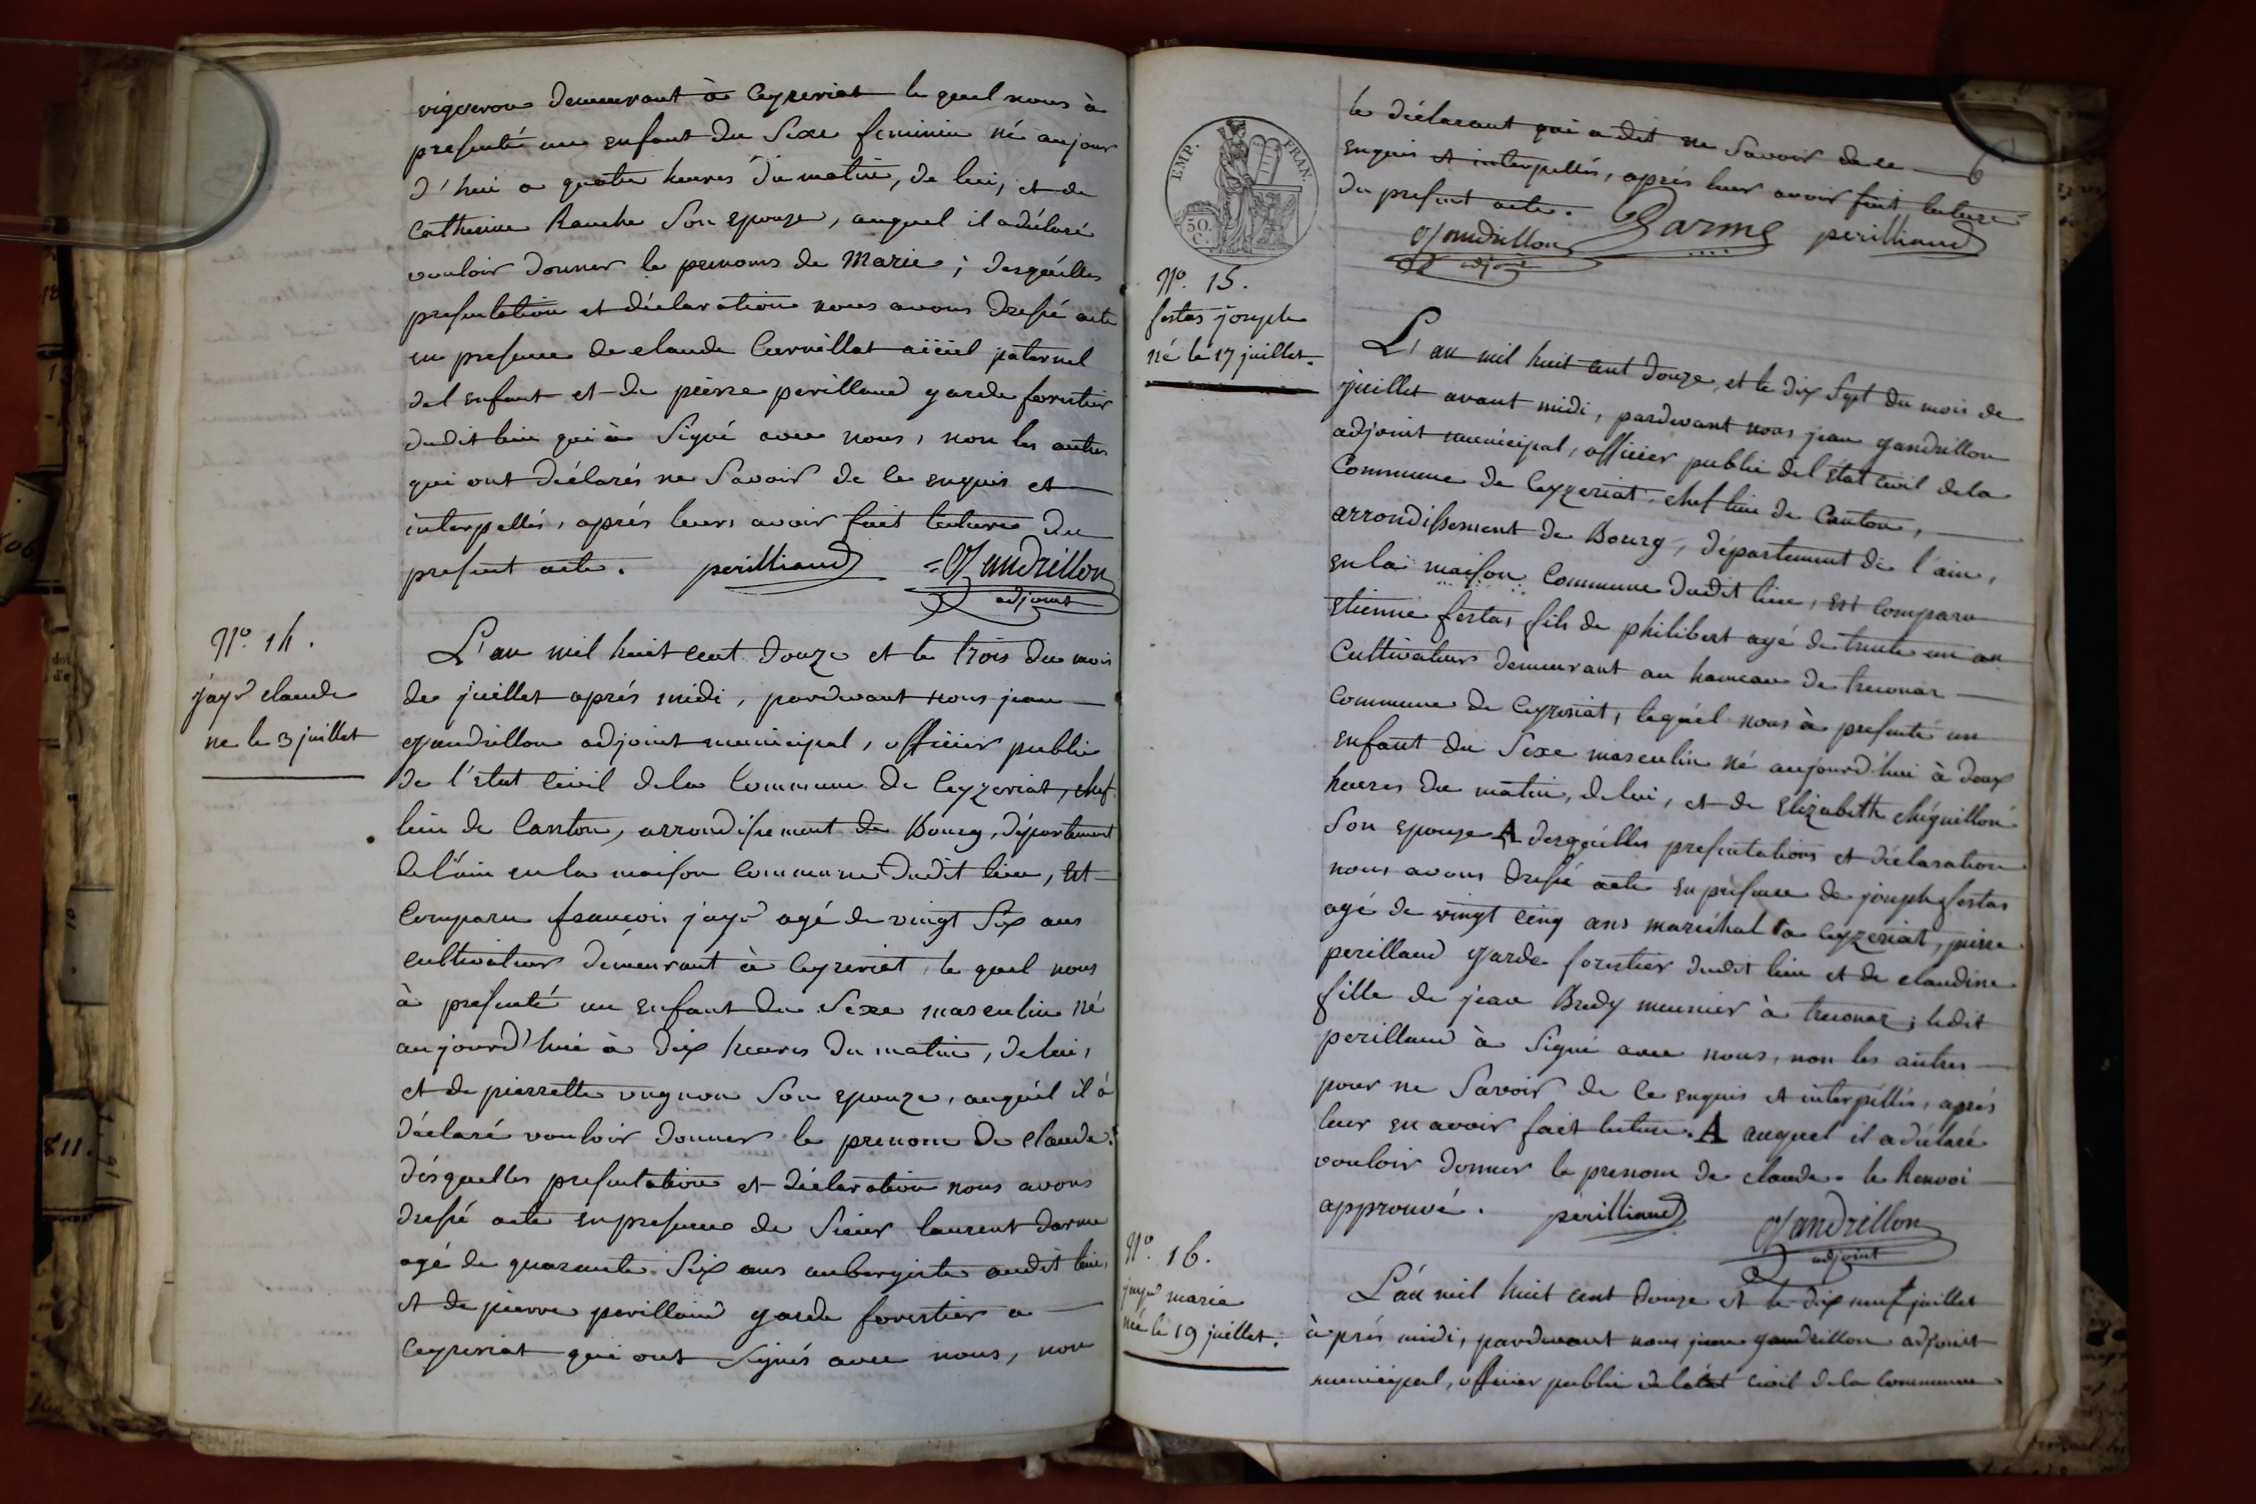 vigneron demeurant à Ceyzeriat le quel nous à
presenté un enfant du Sexe feminin né aujour
d'hui a quatre heures du matin, de lui, et de
Catherine Son epouze, auquel il a déclaré
vouloir donner le prenoms de Marie; desquelles
presentation et déclaration nous avons dressé acte
en presence de claude Curvillat aïeiel paternel
de l enfant et de pierre perilland garde forestier
dudit lieu qui à Signé avec nous, non les autres
qui ont déclarés ne Savoir de ce enquis et
interpellés, aprés leurs avoir fait lecture du
present acte. perilliand Gandrillon
adjoint
N.o 14.
jayr claude
ne le 3 juillet
L'an mil huit cent douze et le trois du mois
de juillet aprés midi, pardevant nous jean
gandrillon adjoint municipal, officier public
de l'etat Civil de la Commune de Ceyzeriat, chef
lieu de Canton, arrondissement de Bourg, département
de l'ain en la maison Commune dudit lieu, Est
Comparu françois jayr agé de vingt Six ans
Cultivateur demeurant à Ceyzeriat, le quel nous
à presenté un enfant du Sexe masculin né
aujourd'hui à dix heures du matin, de lui,
et de pierrette vugnon Son epouze, auquél il à
déclaré vouloir donner le prenom de claude.
désquelles presentation et déclaration nous avons
dressé acte en presence de Sieur laurent darme
agé de quarante Six ans aubergiste audit lieu,
et de pierre perilland garde forestier a
Ceyzeriat qui ont Signés avec nous, non
EMP. FRAN.
50.
C.
le déclarant qui a dit ne Savoir de ce
enquis et interpellés, aprés leur avoir fait lecture
du present acte.
Gandrillon Darme perilliand
adjoint
N.o 15.
festas joseph
né le 17 juillet.
L'an mil huit cent douze, et le dix Sept du mois de
juillet avant midi, pardevant nous jean gandrillon
adjoint municipal, officier public de l état Civil de la
Commune de Ceyzeriat, chef lieu de Canton,
arrondissement de Bourg, département de l'ain,
en la maison Commune dudit lieu, est Comparu
etienne festas fils de philibert agé de trente un an
Cultivateur demeurant au hameau de treconar
Commune de Ceyzeriat, lequél nous à presenté un
enfant du Sexe masculin né aujourd'hui à deux
heures du matin, de lui, et de Elizabeth chéguillon
Son epouze A desquélles presentations et déclaration
nous avons dressé acte en présence de joseph festas
agé de vingt cinq ans maréchal a Ceyzeriat, pierre
perilland garde forestier dudit lieu et de claudine
fille de jean Bredy meunier à treconar; ledit
perilland à Signé avec nous, non les autres
pour ne Savoir de ce enquis et interpéllés, aprés
leur en avoir fait lecture. A auquel il a déclaré
vouloir donner le prenom de claude. le Renvoi
approuvé. perilliand Gandrillon
adjoint
N.o 16.
jayr marie
née le 19 juillet.
L'an mil huit cent douze et le dix neuf juillet
à prés midi, pardevant nous jean gandrillon adjoint
municipal, officier public de l'état Civil de la Commune
811.